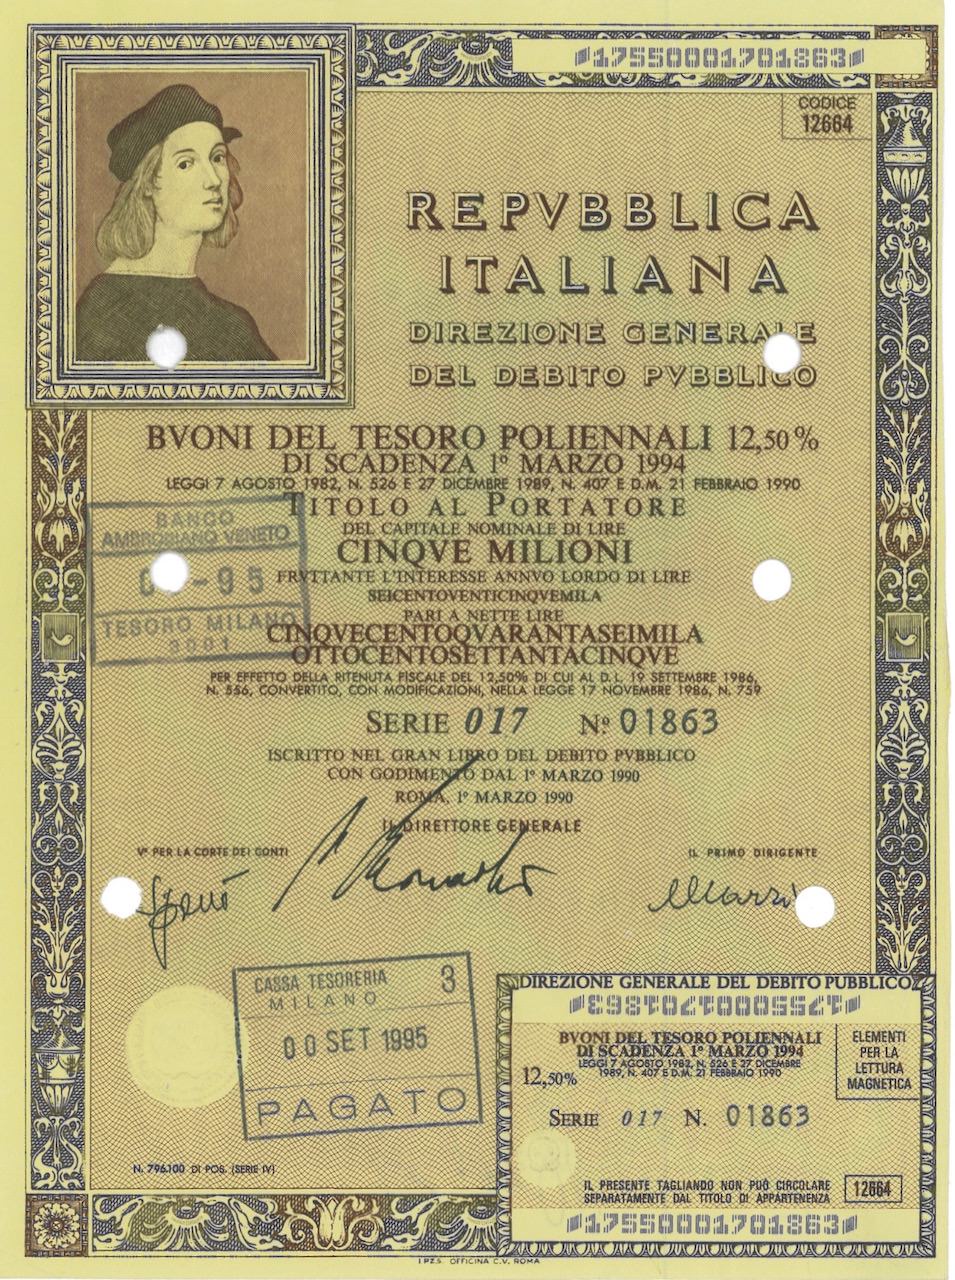 175500001701863
CODICE
12664
REPVBBLICA
ITALIANA
DIREZIONE GENERALE
DEL DEBITO PVBBLICO
BVONI DEL TESORO POLIENNALI 12,50%
DI SCADENZA 1º MARZO 1994
LEGGI 7 AGOSTO 1982, N. 526 E 27 DICEMBRE 1989, N. 407 E D.M. 21 FEBBRAIO 1990
TITOLO AL PORTATORE
DEL CAPITALE NOMINALE DI LIRE
CINQVE MILIONI
FRVTTANTE L'INTERESSE ANNVO LORDO DI LIRE
SEICENTOVENTICINQVEMILA
PARI A NETTE LIRE
CINQVECENTOQVARANTASEIMILA
OTTOCENTOSETTANTACINQVE
PER EFFETTO DELLA RITENUTA FISCALE DEL 12,50% DI CUI AL D.L. 19 SETTEMBRE 1986,
N. 556, CONVERTITO, CON MODIFICAZIONI, NELLA LEGGE 17 NOVEMBRE 1986, N. 759
BANCO
AMBROSIANO VENETO
-95
TESORO MILANO
3001
SERIE 017 Nº 01863
ISCRITTO NEL GRAN LIBRO DEL DEBITO PVBBLICO
CON GODIMENTO DAL 1º MARZO 1990
ROMA, 1º MARZO 1990
IL DIRETTORE GENERALE
Vº PER LA CORTE DEI CONTI
IL PRIMO DIRIGENTE
CASSA TESORERIA 3
MILANO
00 SET 1995
PAGATO
N. 796.100 DI POS. (SERIE IV)
DIREZIONE GENERALE DEL DEBITO PUBBLICO
175500001701863
BVONI DEL TESORO POLIENNALI
DI SCADENZA 1º MARZO 1994
LEGGI 7 AGOSTO 1982, N. 526 E 27 DICEMBRE
12,50% 1989, N. 407 E D.M. 21 FEBBRAIO 1990
ELEMENTI
PER LA
LETTURA
MAGNETICA
SERIE 017 N. 01863
IL PRESENTE TAGLIANDO NON PUÒ CIRCOLARE
SEPARATAMENTE DAL TITOLO DI APPARTENENZA
12664
175500001701863
I.P.Z.S. OFFICINA C.V. ROMA